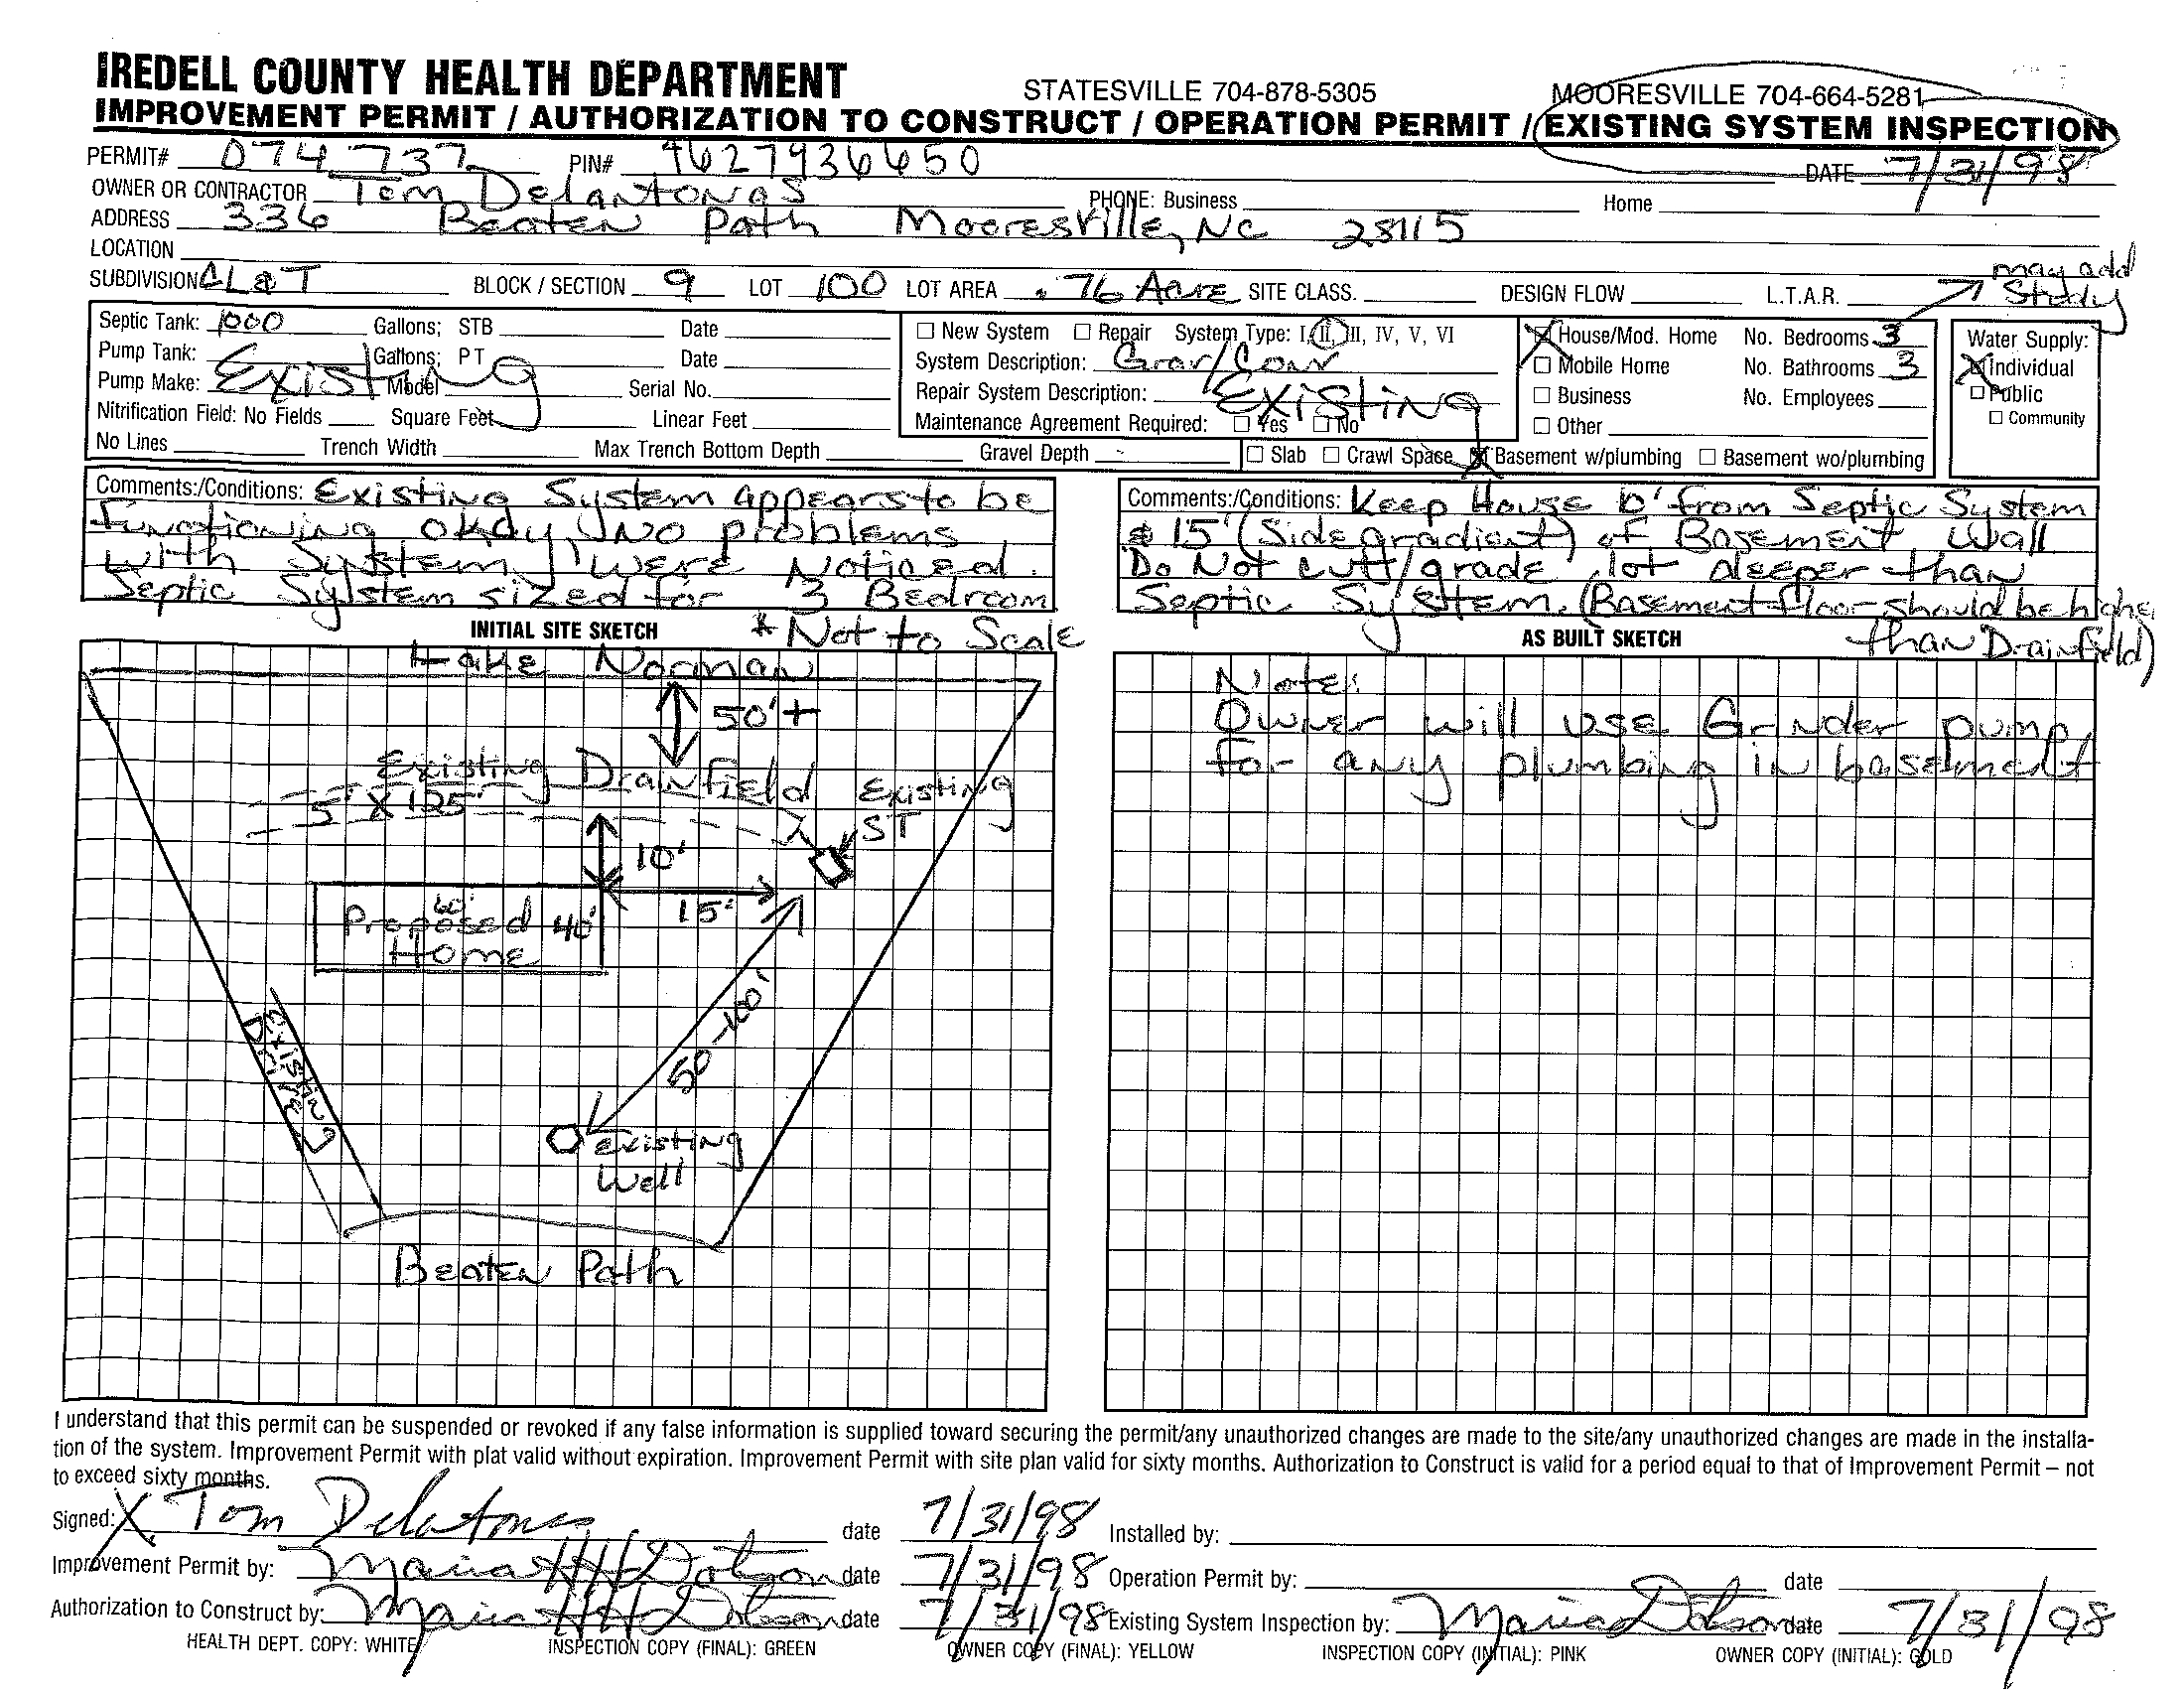 IREDELL COUNTY HEALTH DEPARTMENT STATESVILLE 704-878-5305 MOORESVILLE 704-664-5281
IMPROVEMENT PERMIT / AUTHORIZATION TO CONSTRUCT / OPERATION PERMIT / EXISTING SYSTEM INSPECTION
PERMIT# 074737 PIN# 4627936650 DATE 7/31/98
OWNER OR CONTRACTOR Tom Delantonas PHONE: Business Home
ADDRESS 336 Beaten Path Mooresville, NC 28115
LOCATION
may add
SUBDIVISION CL&T BLOCK / SECTION 9 LOT 100 LOT AREA .76 Acre SITE CLASS. DESIGN FLOW L.T.A.R. Study
Septic Tank: 1000 Gallons; STB Date
Pump Tank: Gallons; PT Date
Pump Make: Existing Model Serial No.
Nitrification Field: No Fields Square Feet Linear Feet
No Lines Trench Width Max Trench Bottom Depth Gravel Depth
☐ New System ☐ Repair System Type: I, II, III, IV, V, VI
System Description: Grav/Conv
Repair System Description: Existing
Maintenance Agreement Required: ☐ Yes ☐ No
☒ House/Mod. Home No. Bedrooms 3
☐ Mobile Home No. Bathrooms 3
☐ Business No. Employees
☐ Other
☐ Slab ☐ Crawl Space ☒ Basement w/plumbing ☐ Basement wo/plumbing
Water Supply:
☒ Individual
☐ Public
☐ Community
Comments:/Conditions: Existing System appears to be
functioning okay, No problems
with System were Noticed.
Septic System sized for 3 Bedroom
Comments:/Conditions: Keep House 10' from Septic System
& 15' (Sidegradient) of Basement Wall
Do Not cutt/grade lot deeper than
Septic System. (Basement floor should be higher
than Drainfield)
INITIAL SITE SKETCH * Not to Scale
Lake Norman
50'+
Existing Drainfield
5' X 125'
Existing
ST
10'
15'
60'
Proposed 40'
Home
50-100'
Existing
Existing
Well
Beaten Path
AS BUILT SKETCH
Note:
Owner will use Grinder pump
for any plumbing in basement
I understand that this permit can be suspended or revoked if any false information is supplied toward securing the permit/any unauthorized changes are made to the site/any unauthorized changes are made in the installa-
tion of the system. Improvement Permit with plat valid without expiration. Improvement Permit with site plan valid for sixty months. Authorization to Construct is valid for a period equal to that of Improvement Permit – not
to exceed sixty months.
Signed: X Tom Delantonas date 7/31/98 Installed by:
Improvement Permit by: Maria H Dotson date 7/31/98 Operation Permit by: date
Authorization to Construct by: Maria H Dotson date 7/31/98 Existing System Inspection by: Maria Dotson date 7/31/98
HEALTH DEPT. COPY: WHITE INSPECTION COPY (FINAL): GREEN OWNER COPY (FINAL): YELLOW INSPECTION COPY (INITIAL): PINK OWNER COPY (INITIAL): GOLD